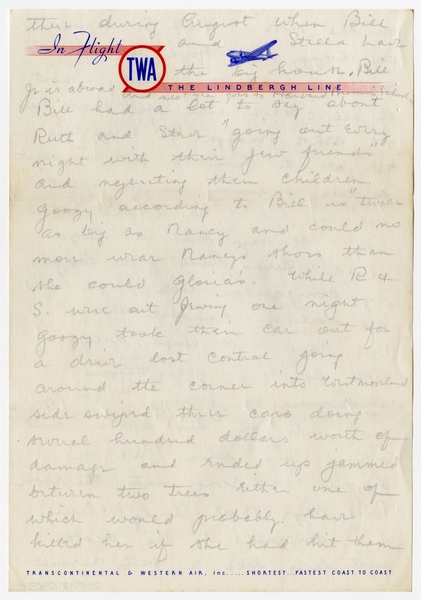 their during August when Bill
In Flight
and Stella have
TWA
the big house. Bill
THE LINDBERGH LINE
Jr is abroad and next year goes to Harvard School
Bill had a lot to say about
Ruth and Stew "going out every
night with their Jew friends"
and neglecting their children.
Googy according to Bill is "twice
as big as Nancy and could no
more wear Nancy's shoes than
she could Gloria's. While R &
S. were out Jewing one night
Googy took their car out for
a drive lost control going
around the corner into Westmoreland
side swiped three cars doing
several hundred dollars worth of
damage and ended up jammed
between two trees either one of
which would probably have
killed her if she had hit them
TRANSCONTINENTAL & WESTERN AIR, Inc.....SHORTEST...FASTEST COAST TO COAST